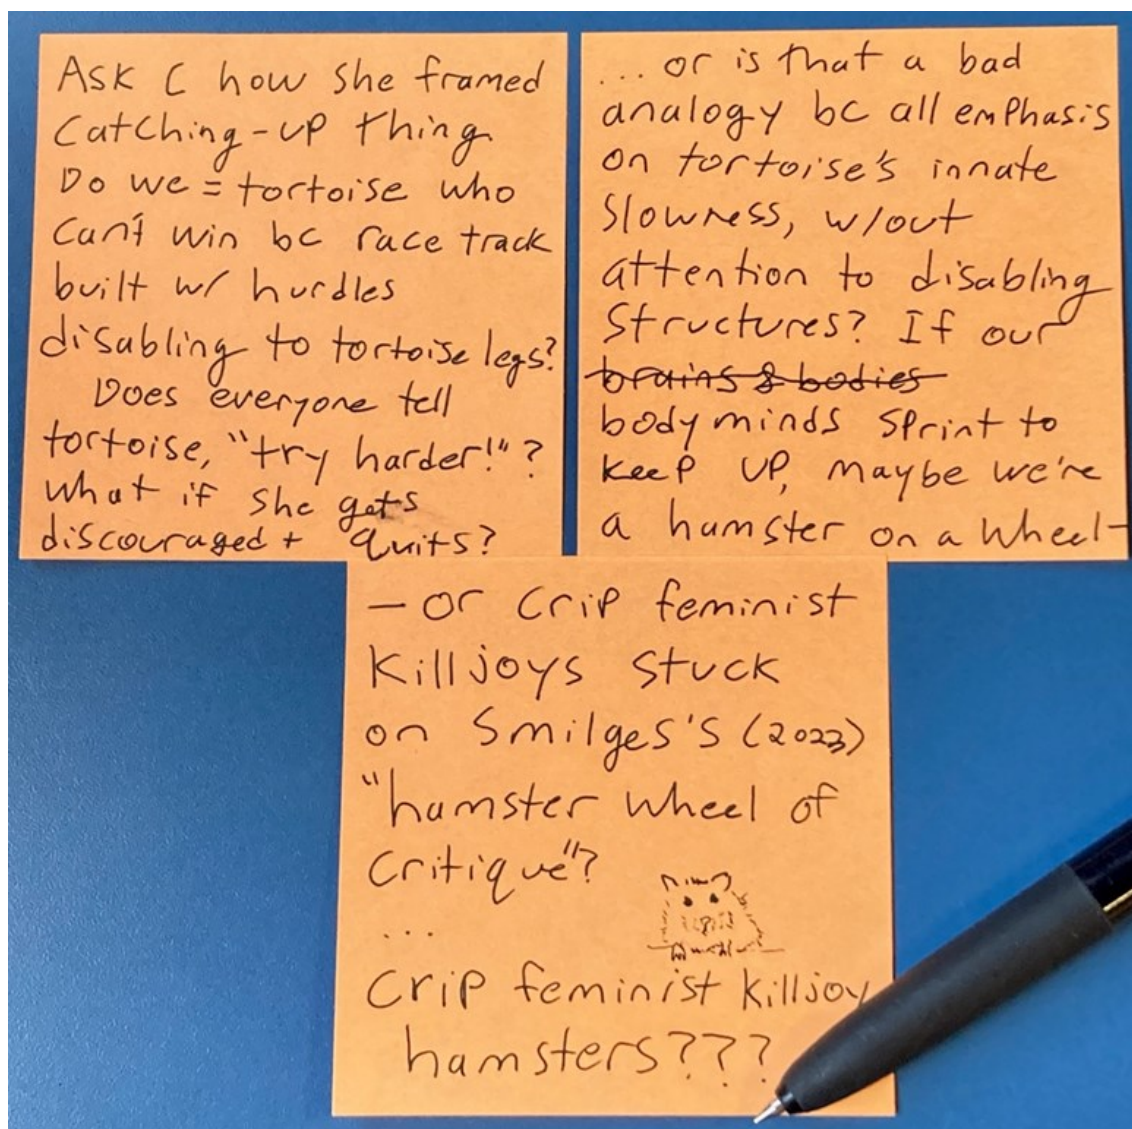 Ask C how she framed
catching-up thing.
Do we = tortoise who
can't win bc race track
built w/ hurdles
disabling to tortoise legs?
Does everyone tell
tortoise, "try harder!"?
What if she gets
discouraged + quits?
... or is that a bad
analogy bc all emphasis
on tortoise's innate
slowness, w/out
attention to disabling
structures? If our
brains & bodies
bodyminds sprint to
keep up, maybe we're
a hamster on a wheel-
- or crip feminist
killjoys stuck
on Smilges's (2023)
"hamster wheel of
critique"?
...
crip feminist killjoy
hamsters???